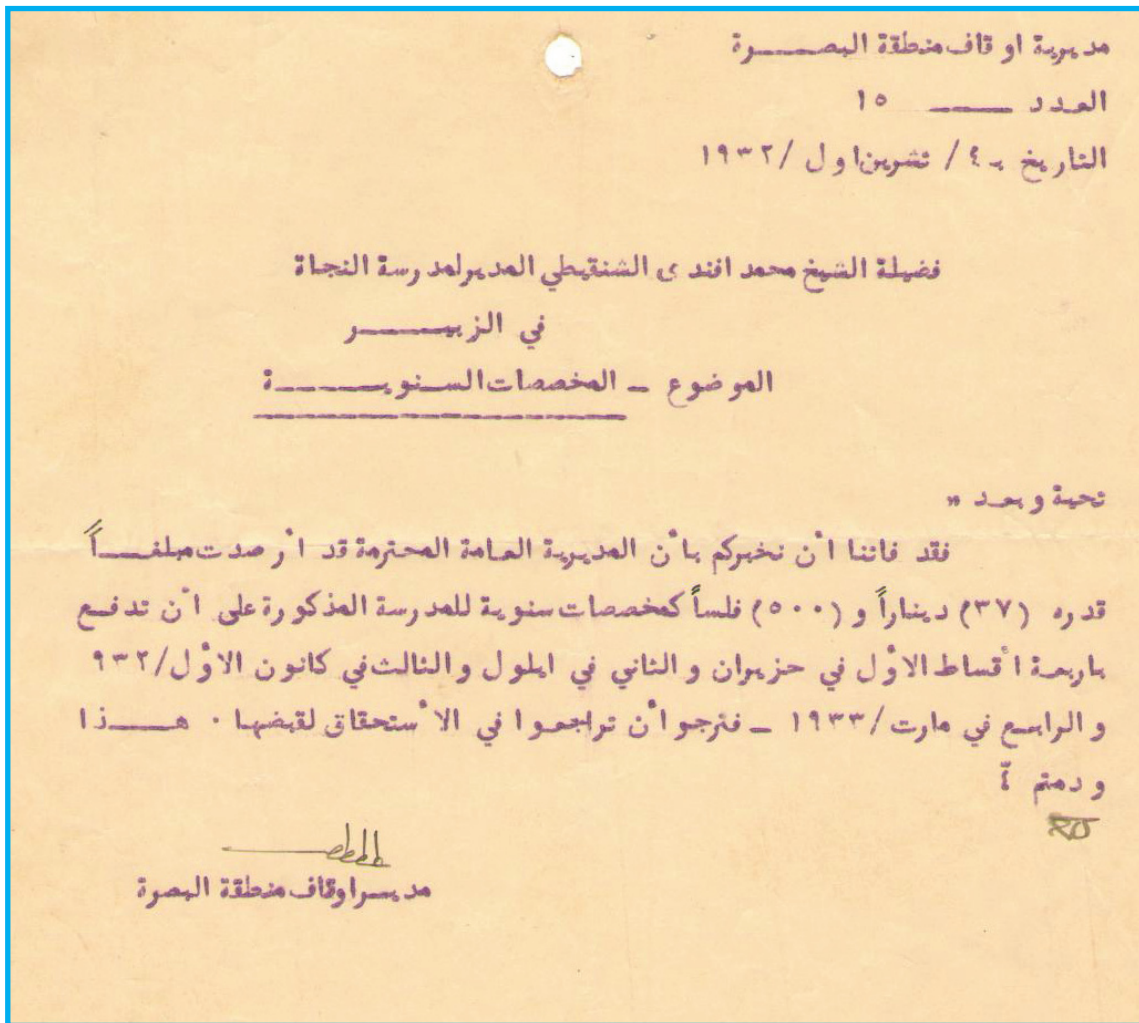 مديرية اوقاف منطقة البصـــــرة
العدد ـــــ ١٥
التاريخ ـ ٤/ تشرين اول /١٩٣٢
فضيلة الشيخ محمد افندى الشنقيطي المدير لمدرسة النجاة
في الزبيـــــر
الموضوع ـ المخصصات السـنويـــــة
تحية وبعـد "
فقد فاتنا أن نخبركم بأن المديرية العامة المحترمة قد أرصدت مبلغـــاً
قدره (٣٧) ديناراً و (٥٠٠) فلساً كمخصصات سنوية للمدرسة المذكورة على أن تدفـع
باربعة أقساط الاؤل في حزيران والثاني في ايلول والثالث في كانون الاؤل/٩٣٢
والرابـع في مارت/١٩٣٣ ـ فنرجو أن تراجعـوا في الأستحقاق لقبضها ٠ هـــذا
ودمتم
مديـر اوقاف منطقة البصرة